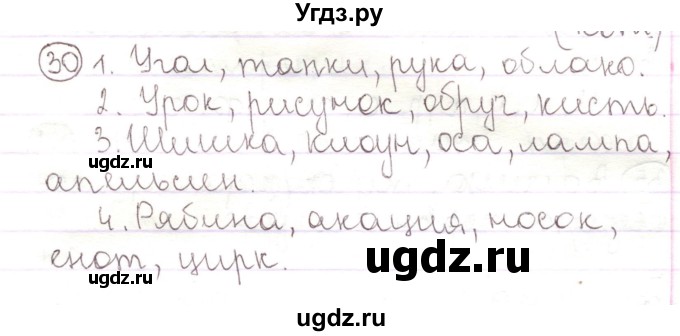 Угдз.ру
30 1. Угол, тапки, рука, облако.
2. Урок, рисунок, обруч, кисть.
ugdz.ru
3. Шишка, клоун, оса, лампа,
апельсин.
4. Рябина, акация, носок,
енот, цирк.
ugdz.ru
ugdz.ru